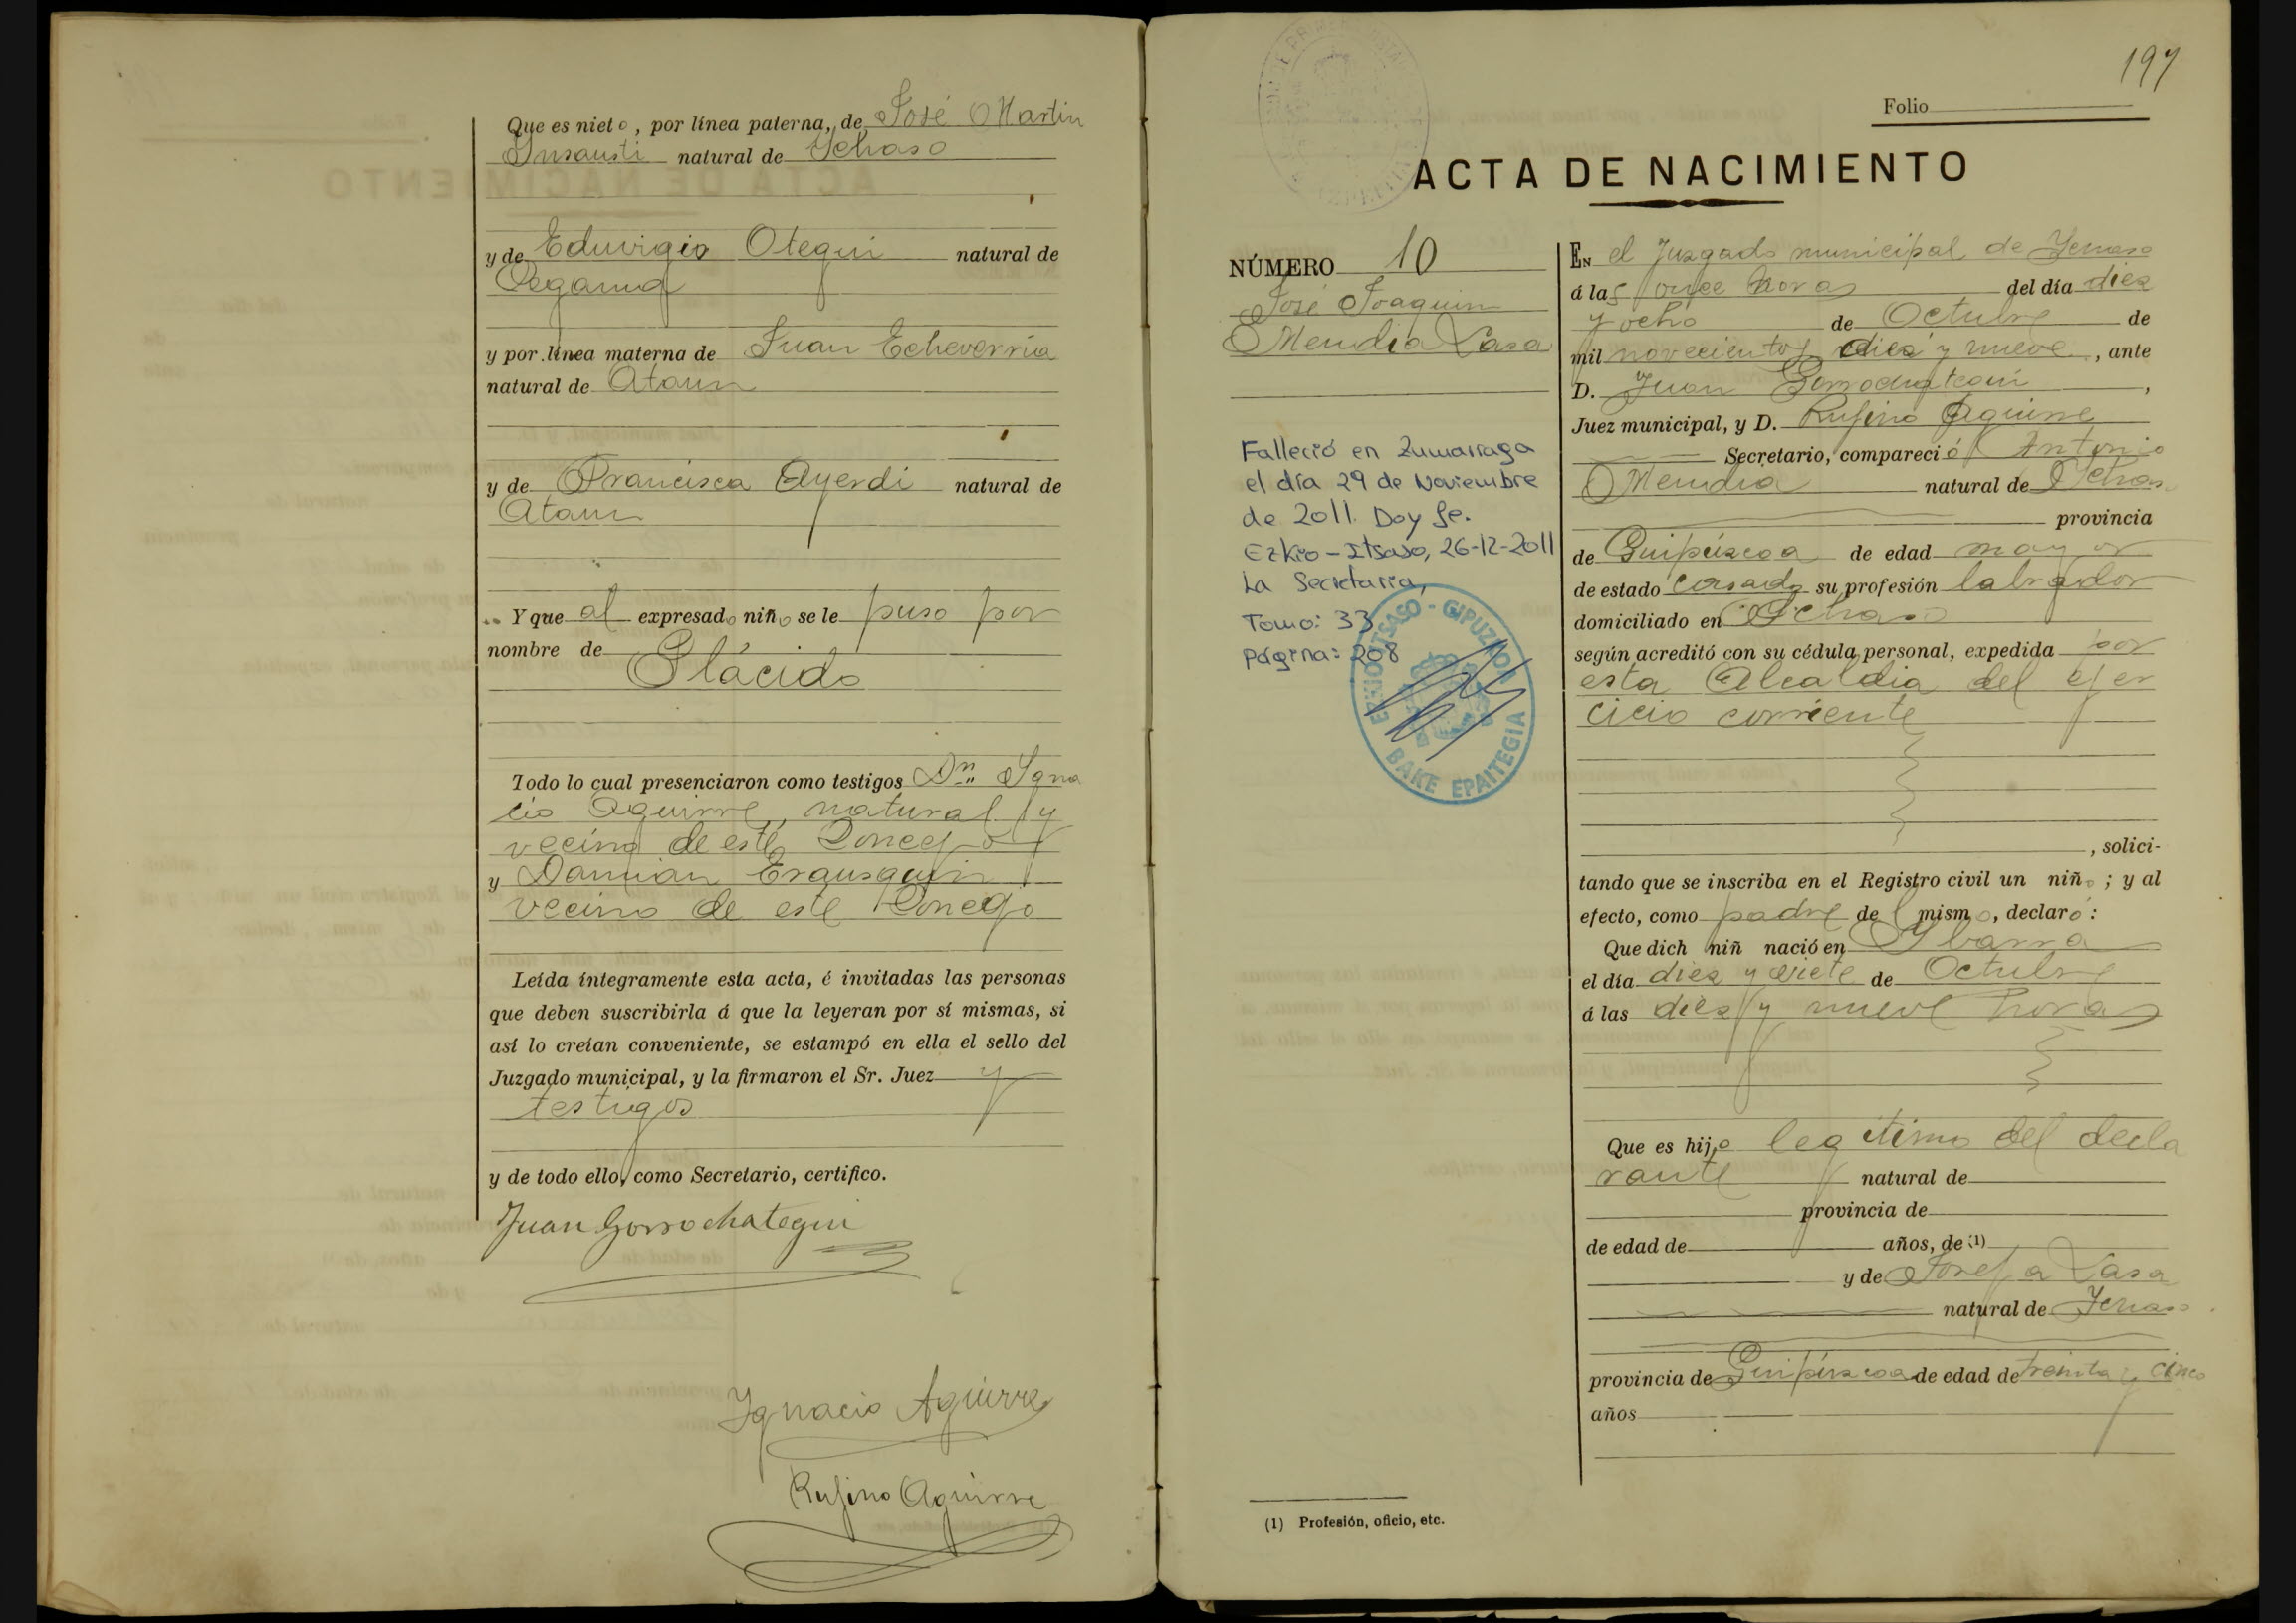 Que es nieto, por línea paterna, de José Martin
Insausti natural de Ichaso
y de Eduvigis Otegui natural de
Cegama
y por línea materna de Juan Echeverria
natural de Ataun
y de Francisca Ayerdi natural de
Ataun
Y que al expresado niño se le puso por
nombre de
Plácido
Todo lo cual presenciaron como testigos Dn. Igna
cio Aguirre, natural y
vecino de este Concejo
y Damian Erausquin
vecino de este Concejo
Leída íntegramente esta acta, é invitadas las personas
que deben suscribirla á que la leyeran por sí mismas, si
así lo creían conveniente, se estampó en ella el sello del
Juzgado municipal, y la firmaron el Sr. Juez y
testigos
y de todo ello, como Secretario, certifico.
Juan Gorrochategui
Ignacio Aguirre
Rufino Aguirre
197
Folio
ACTA DE NACIMIENTO
NÚMERO 10
José Joaquin
Mendia Lasa
Falleció en Zumarraga
el día 29 de Noviembre
de 2011. Doy fe.
Ezkio-Itsaso, 26-12-2011
La Secretaria,
Tomo: 33
Página: 208
EZKIO ITSASO - GIPUZKOA
BAKE EPAITEGIA
EN el Juzgado municipal de Ichaso
á las once horas del día diez
y ocho de Octubre de
mil novecientos diez y nueve, ante
D. Juan Gorrochategui,
Juez municipal, y D. Rufino Aguirre
Secretario, compareció Antonio
Mendia natural de Ichaso
provincia
de Guipúzcoa de edad mayor
de estado casado su profesión labrador
domiciliado en Ichaso
según acreditó con su cédula personal, expedida por
esta Alcaldia del ejer
cicio corriente
, solici-
tando que se inscriba en el Registro civil un niño; y al
efecto, como padre del mismo, declaró:
Que dich niñ nació en Ybarra
el día diez y siete de Octubre
á las diez y nueve horas
Que es hijo legitimo del decla
rante natural de
provincia de
de edad de años, de (1)
y de Josefa Lasa
natural de Ichaso
provincia de Guipúzcoa de edad de treinta y cinco
años
(1) Profesión, oficio, etc.